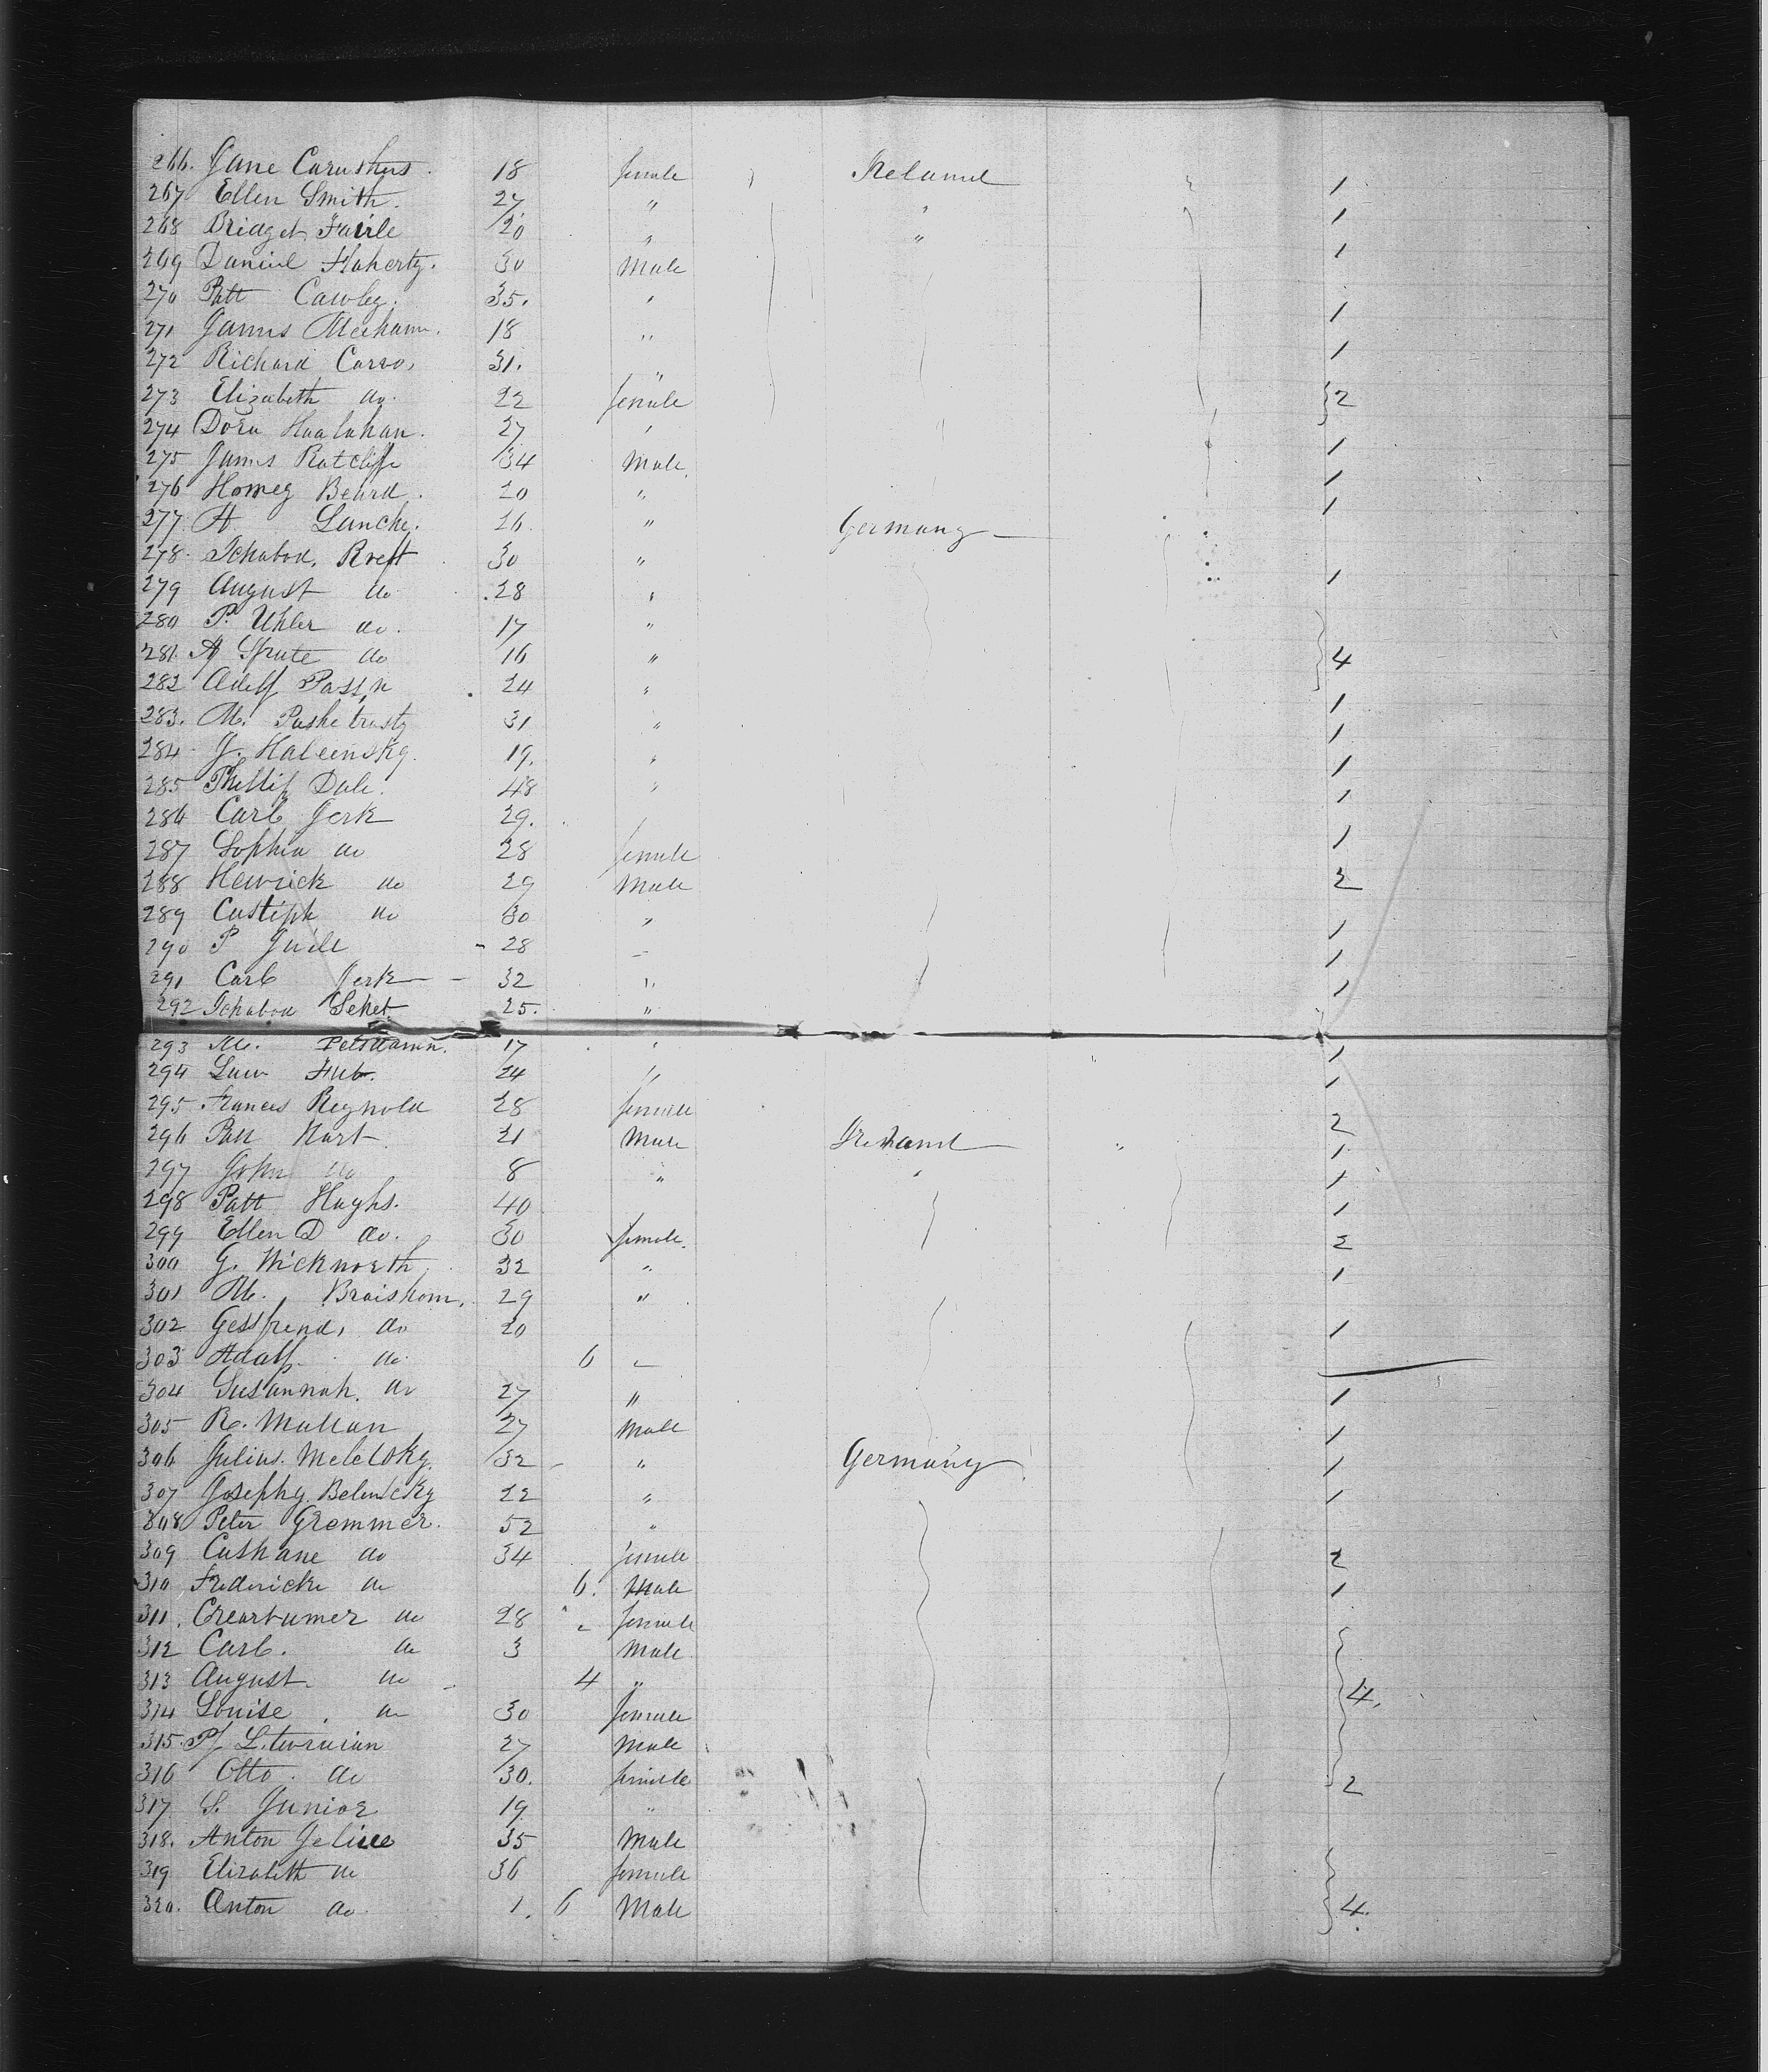 266. Jane Caruthers 18 female Ireland 1
267 Ellen Smith. 27 " " 1
268 Bridget Fairle 20 " " 1
269 Daniel Flaherty. 30 Male
270 Patt Cawley. 35. " 1
271 James Meehann. 18 " 1
272 Richard Carro, 31. "
273 Elizabeth do. 22 female } 2
274 Dora Hoolahan. 27 " 1
275 James Ratcliffe 34 Male. 1
276 Homey Beard. 20 " 1
277. A Lanche. 26. " Germany
278. Ichabod. Rreft 30 " 1
279 August do .28 "
280 P. Uhler do. 17 "
281. A Sprute do 16 " } 4
282 Adolf Passn . 24 " 1
283. M. Pashetrusty 31 " 1
284 J. Haleensky. 19. " 1
285 Phillip Dale. 48 " 1
286 Carl Jerk 29.
287 Sophia do 28 female 1
288 Henrick do 29 Male 2
289 Custiph do 30 " 1
290 P Juile - 28 1
291 Carl Jerk 32 " 1
292 Ichabod Seket 25. "
293 M. 17 " 1
294 Law Fub. 24 " 1
295 Frances Reynold 28 female 2
296 Patt Hart 21 Male Ireland 1
297 John do 8 " " 1
298 Patt Hughs. 40 1
299 Ellen D do. 30 female. 2
300 G. Wicknorth. 32 " 1
301 M. Braishom. 29 "
302 do 20 1
303 Adalf do 6
304 Susannah. do 27 " 1
305 R. Mullan 27 Male 1
306 Julius. Meletsky. 32 " Germany 1
307 Josephy. Belenicky 22 " 1
308 Peter Gremmer. 52 "
309 Cushane do 34 female 2
310 Fredericke do 6. Male 1
311. Creartumer do 28 female
312 Carl. do 3 Male
313 August. do 4 "
314 Louise. do 30 female } 4.
315. Pf Liturnian 27 Male
316 Otto. do 30. female 2
317 S. Junior 19 "
318. Anton Jelice 35 Male
319 Elizabeth do 36 female
320. Anton do. 1. 6 Male } 4.